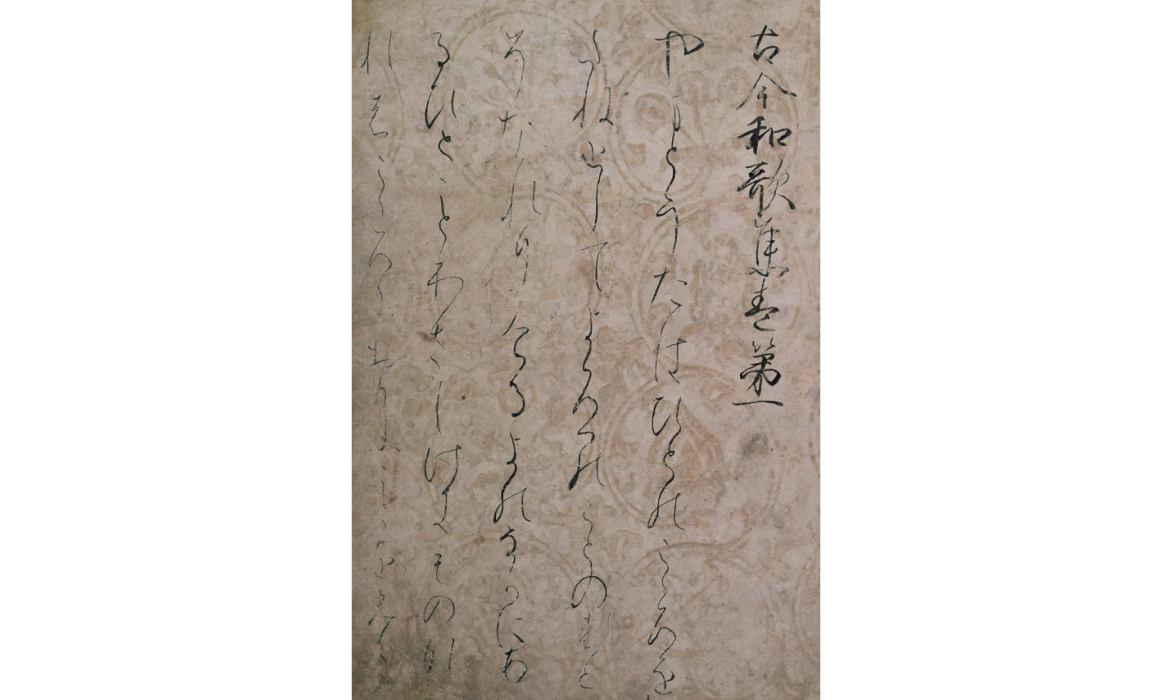 古今和歌集巻第一
やまとうたはひとのこゝろを
たねとしてよろつのことのはと
そなれりけるよのなかにあ
るひとことわさしけきものな
れはこゝろにおもふことを